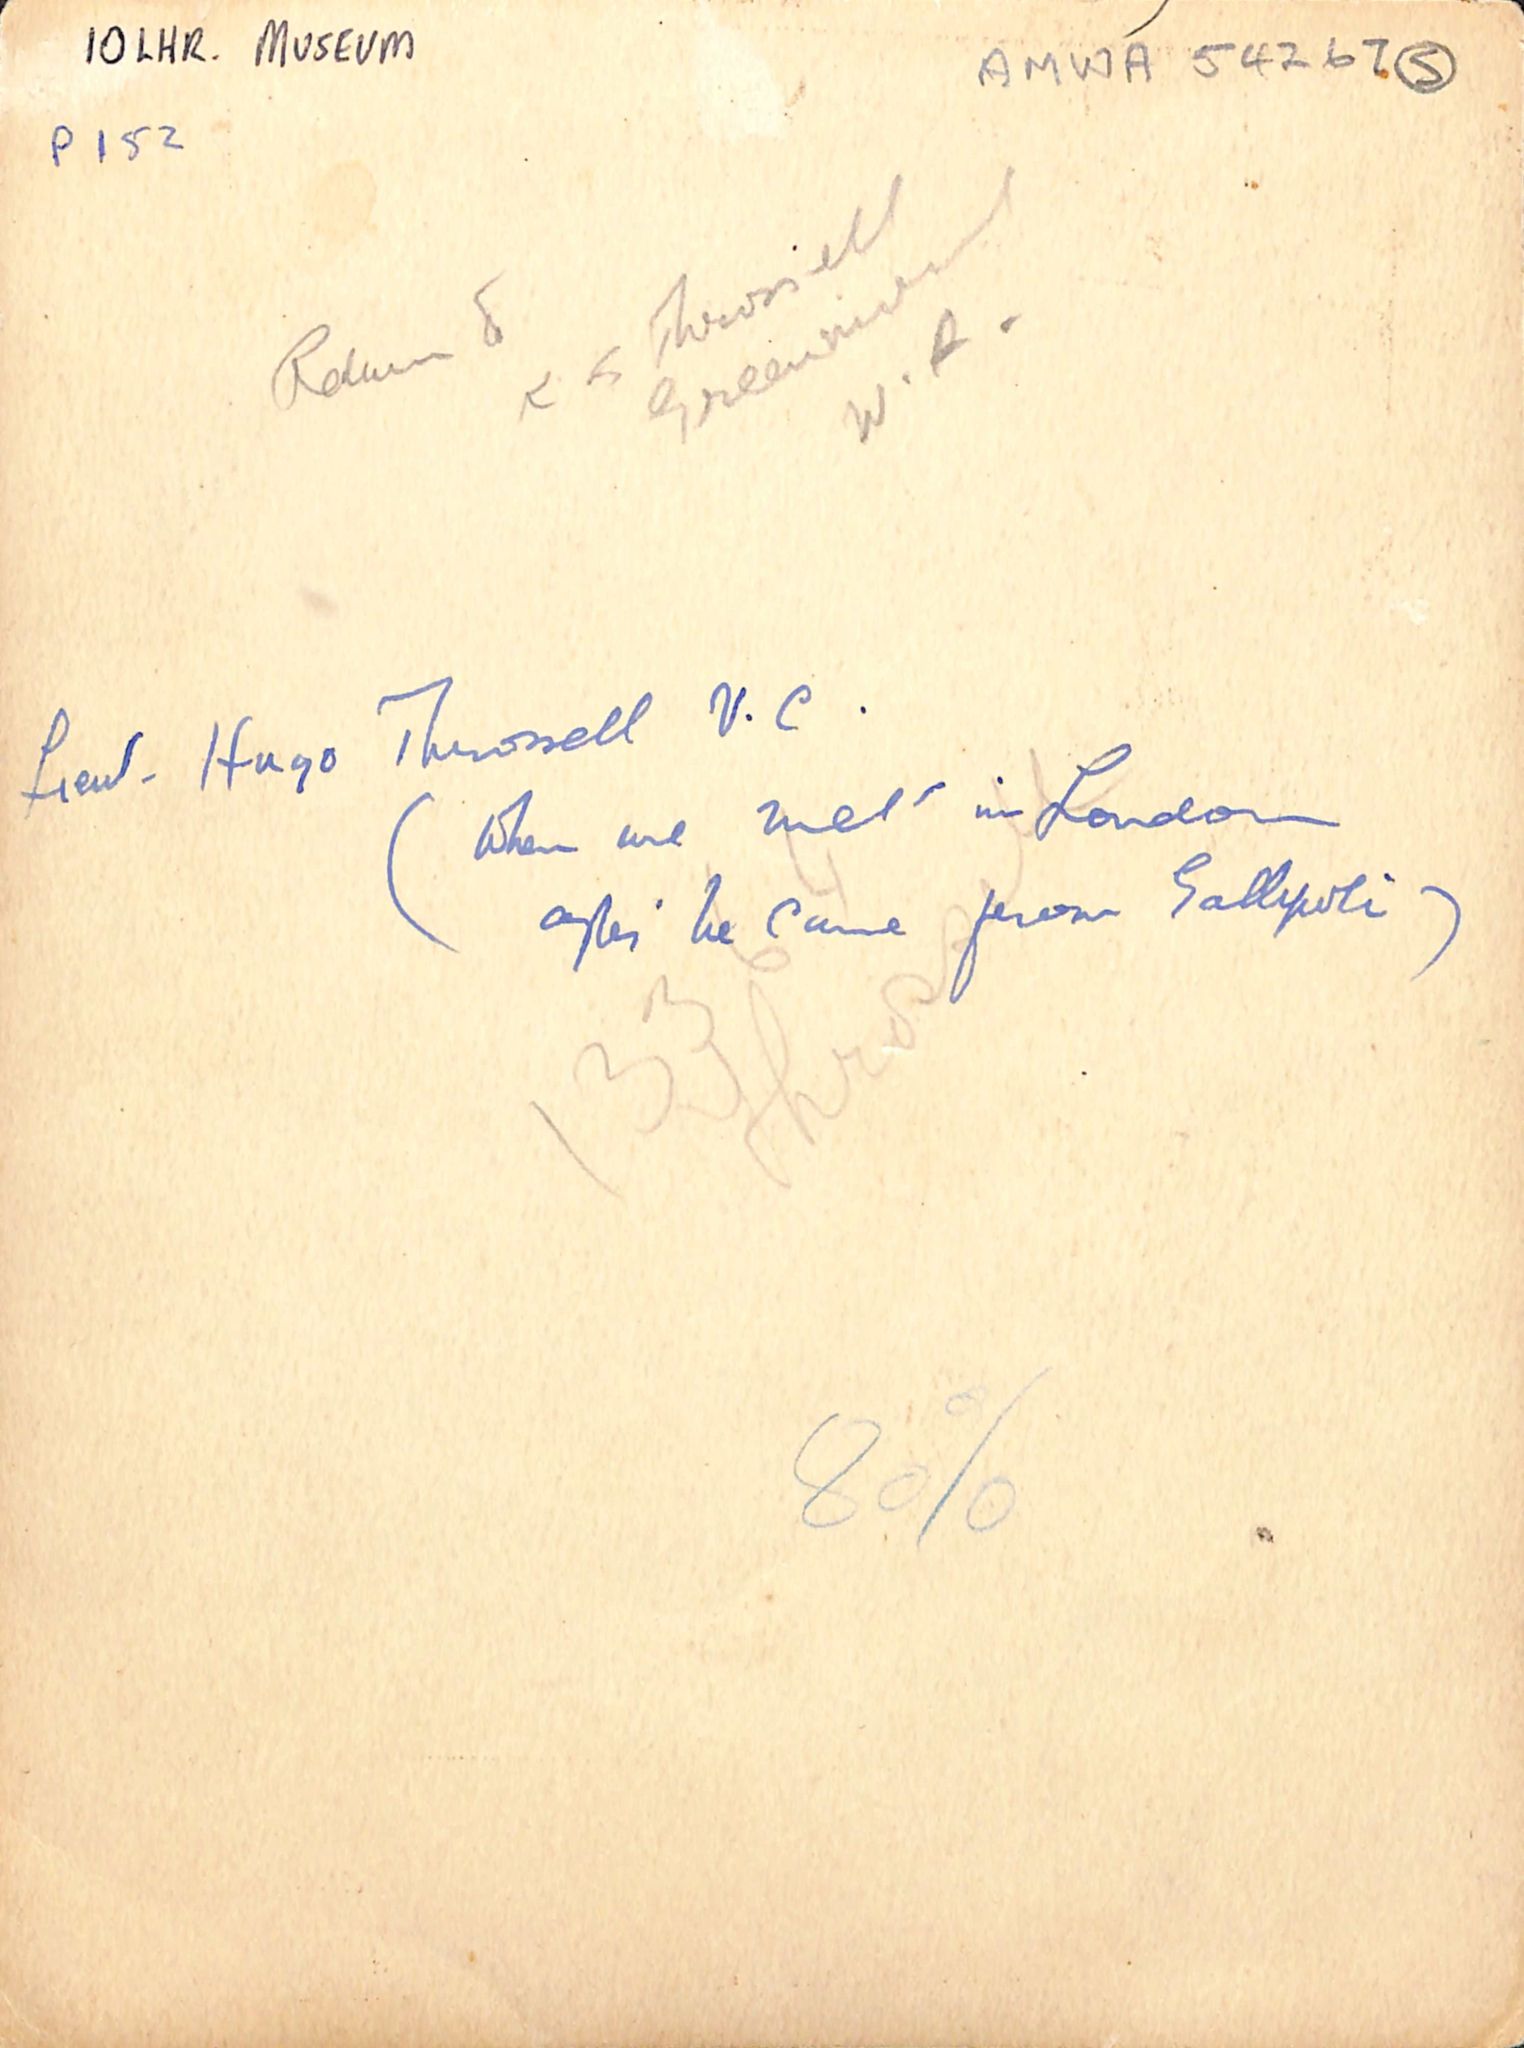 10LHR. MUSEUM
AMWA 54267 (5)
P 152
Return to
K S Throssell
Greenmount
W. A.
Lieut. Hugo Throssell V.C.
(when we met in London
after he came from Gallipoli)
133
Throssell
80%